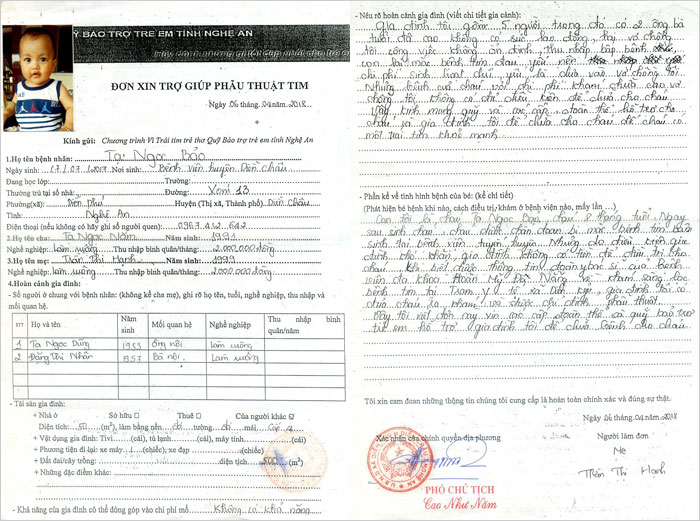 QUỸ BẢO TRỢ TRẺ EM TỈNH NGHỆ AN
ĐƠN XIN TRỢ GIÚP PHẪU THUẬT TIM
Ngày 06 tháng 04 năm 2018
Kính gửi: Chương trình Vì Trái tim trẻ thơ Quỹ Bảo trợ trẻ em tỉnh Nghệ An
1.Họ tên bệnh nhân: Tạ Ngọc Bảo
Ngày sinh: 17/07/2017 Nơi sinh: Bệnh viện huyện Diễn Châu
Đang học lớp: Trường:
Thường trú tại số nhà: Đường: Xóm 13
Phường(xã): Diễn Phú Huyện (Thị xã, Thành phố): Diễn Châu
Tỉnh: Nghệ An
Điện thoại (nếu không có hãy ghi số người quen) 0967 412 642
2.Họ tên cha: Tạ Ngọc Năm Năm sinh: 1991
Nghề nghiệp: làm ruộng Thu nhập bình quân/tháng: 2.000.000 đồng
3.Họ tên mẹ: Trần Thị Hạnh Năm sinh: 1999
Nghề nghiệp: làm ruộng Thu nhập bình quân/tháng: 2000.000 đồng
4.Hoàn cảnh gia đình:
- Số người ở chung với bệnh nhân: (không kể cha mẹ), ghi rõ họ tên, tuổi, nghề nghiệp, thu nhập và
mối quan hệ.
STT Họ và tên Năm sinh Mối quan hệ Nghề nghiệp Thu nhập bình quân/năm
1 Tạ Ngọc Dũng 1953 Ông nội Làm ruộng
2 Đặng Thị Nhân 1957 Bà nội Làm ruộng
- Tài sản gia đình:
+ Nhà ở Sở hữu Thuê Của người khác
Diện tích: 50 (m²), làm bằng nền đá tường đá mái cấp 4
+ Vật dụng gia đình: Tivi (cái), tủ lạnh (cái), máy tính (cái)
+ Phương tiện đi lại: xe máy 1 (chiếc), xe đạp (chiếc)
+ Đất đai/cây trồng: diện tích 500 (m²)
+ Những đặc điểm khác:
- Khả năng của gia đình có thể đóng góp vào chi phí mổ Không có khả năng
- Nêu rõ hoàn cảnh gia đình (viết chi tiết gia cảnh):
Gia đình tôi gồm 5 người trong đó có 2 ông bà
tuổi đã cao không có sức lao động, hai vợ chồng
tôi công việc không ổn định, thu nhập bấp bênh
con lại mắc bệnh tim đau yếu nên
chi phí sinh hoạt chủ yếu là dựa vào vợ chồng tôi
Nhưng bệnh của cháu với chi phí khám chữa cao vợ
chồng tôi không có đủ điều kiện để chữa cho cháu
Vậy kính mong quý và các cấp, đoàn thể hỗ trợ cho
cháu và gia đình tôi để chữa cho cháu để cháu có
một trái tim khoẻ mạnh
- Phần kể về tình hình bệnh của bé: (kể chi tiết)
(Phát hiện bé bệnh khi nào, cách điều trị, khám ở bệnh viện nào, mấy lần....)
Con tôi là cháu Tạ Ngọc Bảo, cháu 8 tháng tuổi. Ngay
sau sinh cháu, cháu được chẩn đoán bị mắc bệnh tim bẩm
sinh tại bệnh viện tuyến huyện. Nhưng do điều kiện gia
đình khó khăn, gia đình không có tiền để điều trị cho
cháu. Khi biết được thông tin đoàn y bác sĩ của Bệnh
viện đa khoa Hoàn Mỹ Đà Nẵng về khám sàng lọc
bệnh tim tại Trạm y tế xã gia đình tôi có
đưa cháu ra khám và được chỉ định phẫu thuật.
Vậy tôi viết đơn này xin các cấp đoàn thể và quỹ bảo trợ
trẻ em hỗ trợ gia đình tôi để chữa bệnh cho cháu
Tôi xin cam đoan những thông tin chúng tôi cung cấp là hoàn toàn chính xác và đúng sự thật.
Ngày 06 tháng 04 năm 2018
Xác nhận của chính quyền địa phương
Người làm đơn
Mẹ
Trần Thị Hạnh
PHÓ CHỦ TỊCH
Cao Như Năm